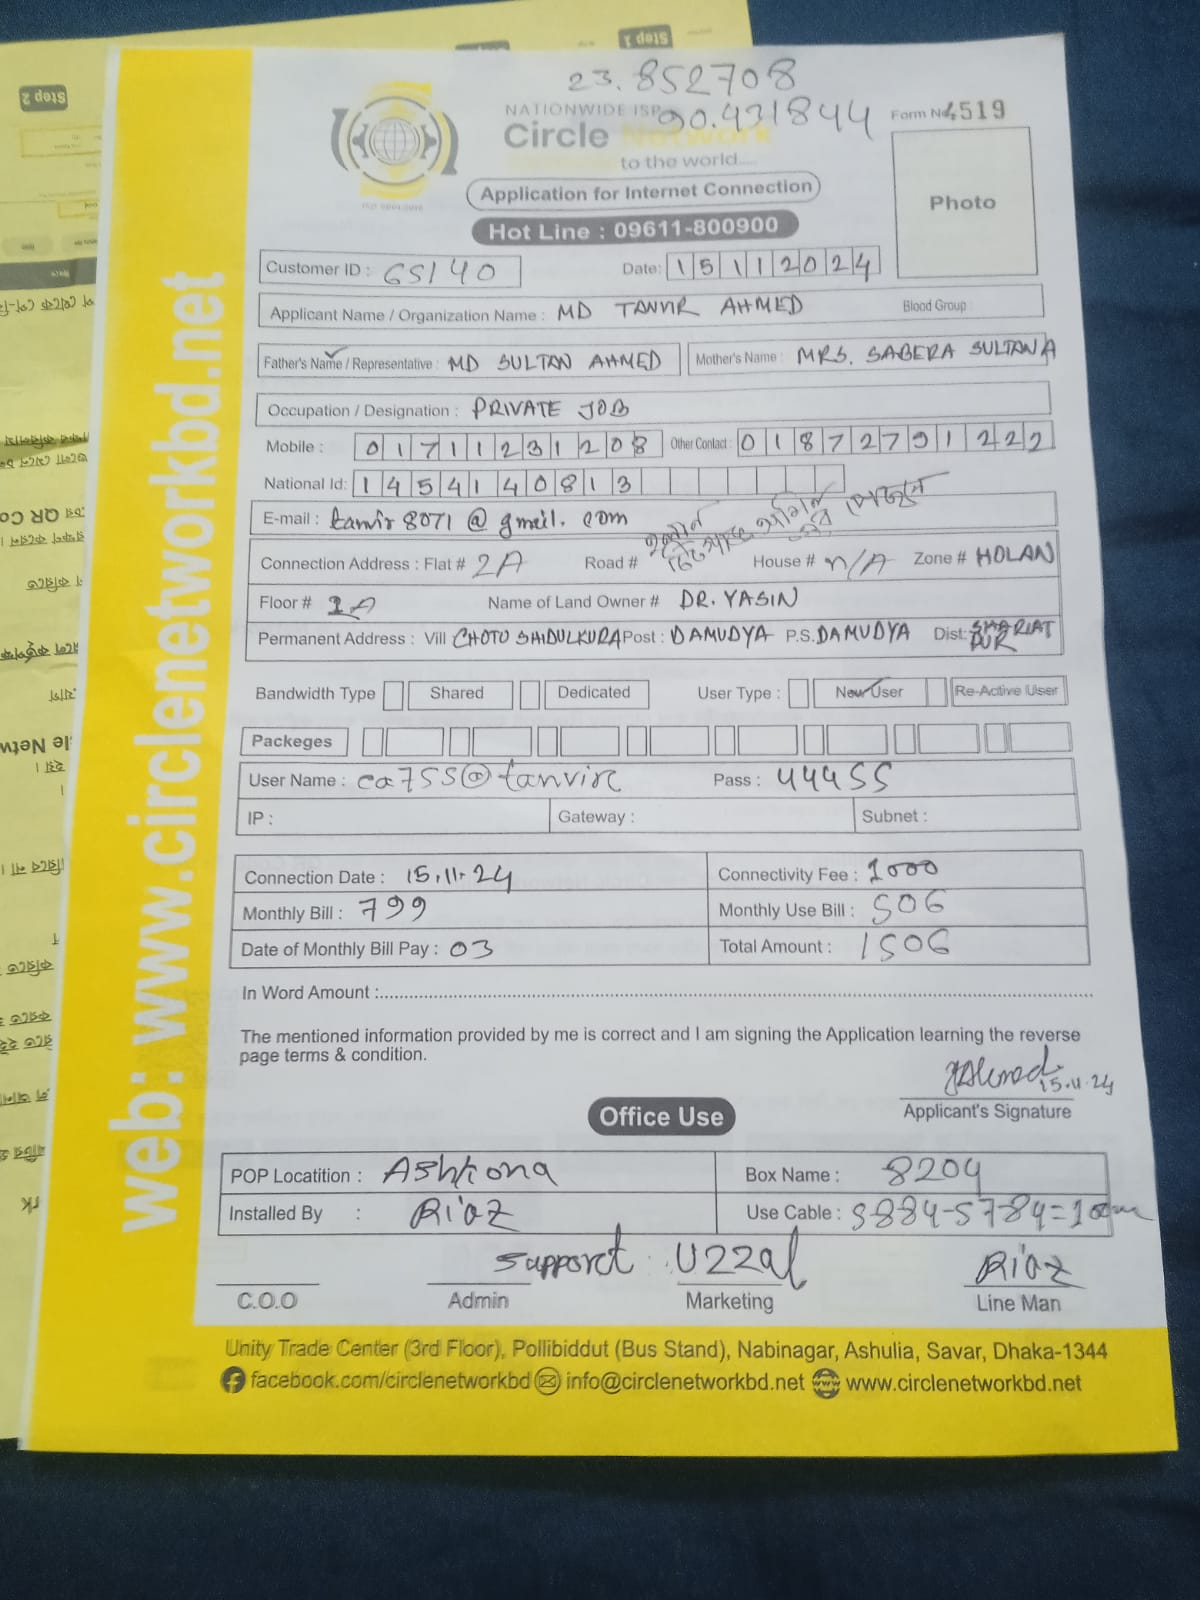 Step 1
Step 2
23.852708
NATIONWIDE ISP
90.431844
Form No 4519
Circle Network
to the world.....
Application for Internet Connection
Hot Line : 09611-800900
Photo
Customer ID : 65140
Date: 15112024
Applicant Name / Organization Name : MD TANVIR AHMED Blood Group :
Father's Name / Representative : MD SULTAN AHMED Mother's Name : MRS. SABERA SULTANA
Occupation / Designation : PRIVATE JOB
Mobile : 01711231208 Other Contact : 01872791222
National Id: 1454140813
E-mail : tanvir8071@gmail.com
Connection Address : Flat # 2A Road # House # n/A Zone # HOLAN
Floor # Name of Land Owner # DR. YASIN
Permanent Address : Vill CHOTO SHIDULKURA Post : DAMUDYA P.S. DAMUDYA Dist: SHARIATPUR
Bandwidth Type Shared Dedicated User Type : New User Re-Active User
Packeges
User Name : ca755@tanvirc Pass : 44455
IP : Gateway : Subnet :
Connection Date : 15.11.24 Connectivity Fee : 1000
Monthly Bill : 799 Monthly Use Bill : 506
Date of Monthly Bill Pay : 03 Total Amount : 1506
In Word Amount :
The mentioned information provided by me is correct and I am signing the Application learning the reverse
page terms & condition.
15.11.24
Applicant's Signature
Office Use
POP Locatition : Ashkona Box Name : 8204
Installed By : Riaz Use Cable : 5884-5784=100m
Support : Uzzal Riaz
C.O.O Admin Marketing Line Man
Unity Trade Center (3rd Floor), Pollibiddut (Bus Stand), Nabinagar, Ashulia, Savar, Dhaka-1344
facebook.com/circlenetworkbd info@circlenetworkbd.net www.circlenetworkbd.net
web: www.circlenetworkbd.net